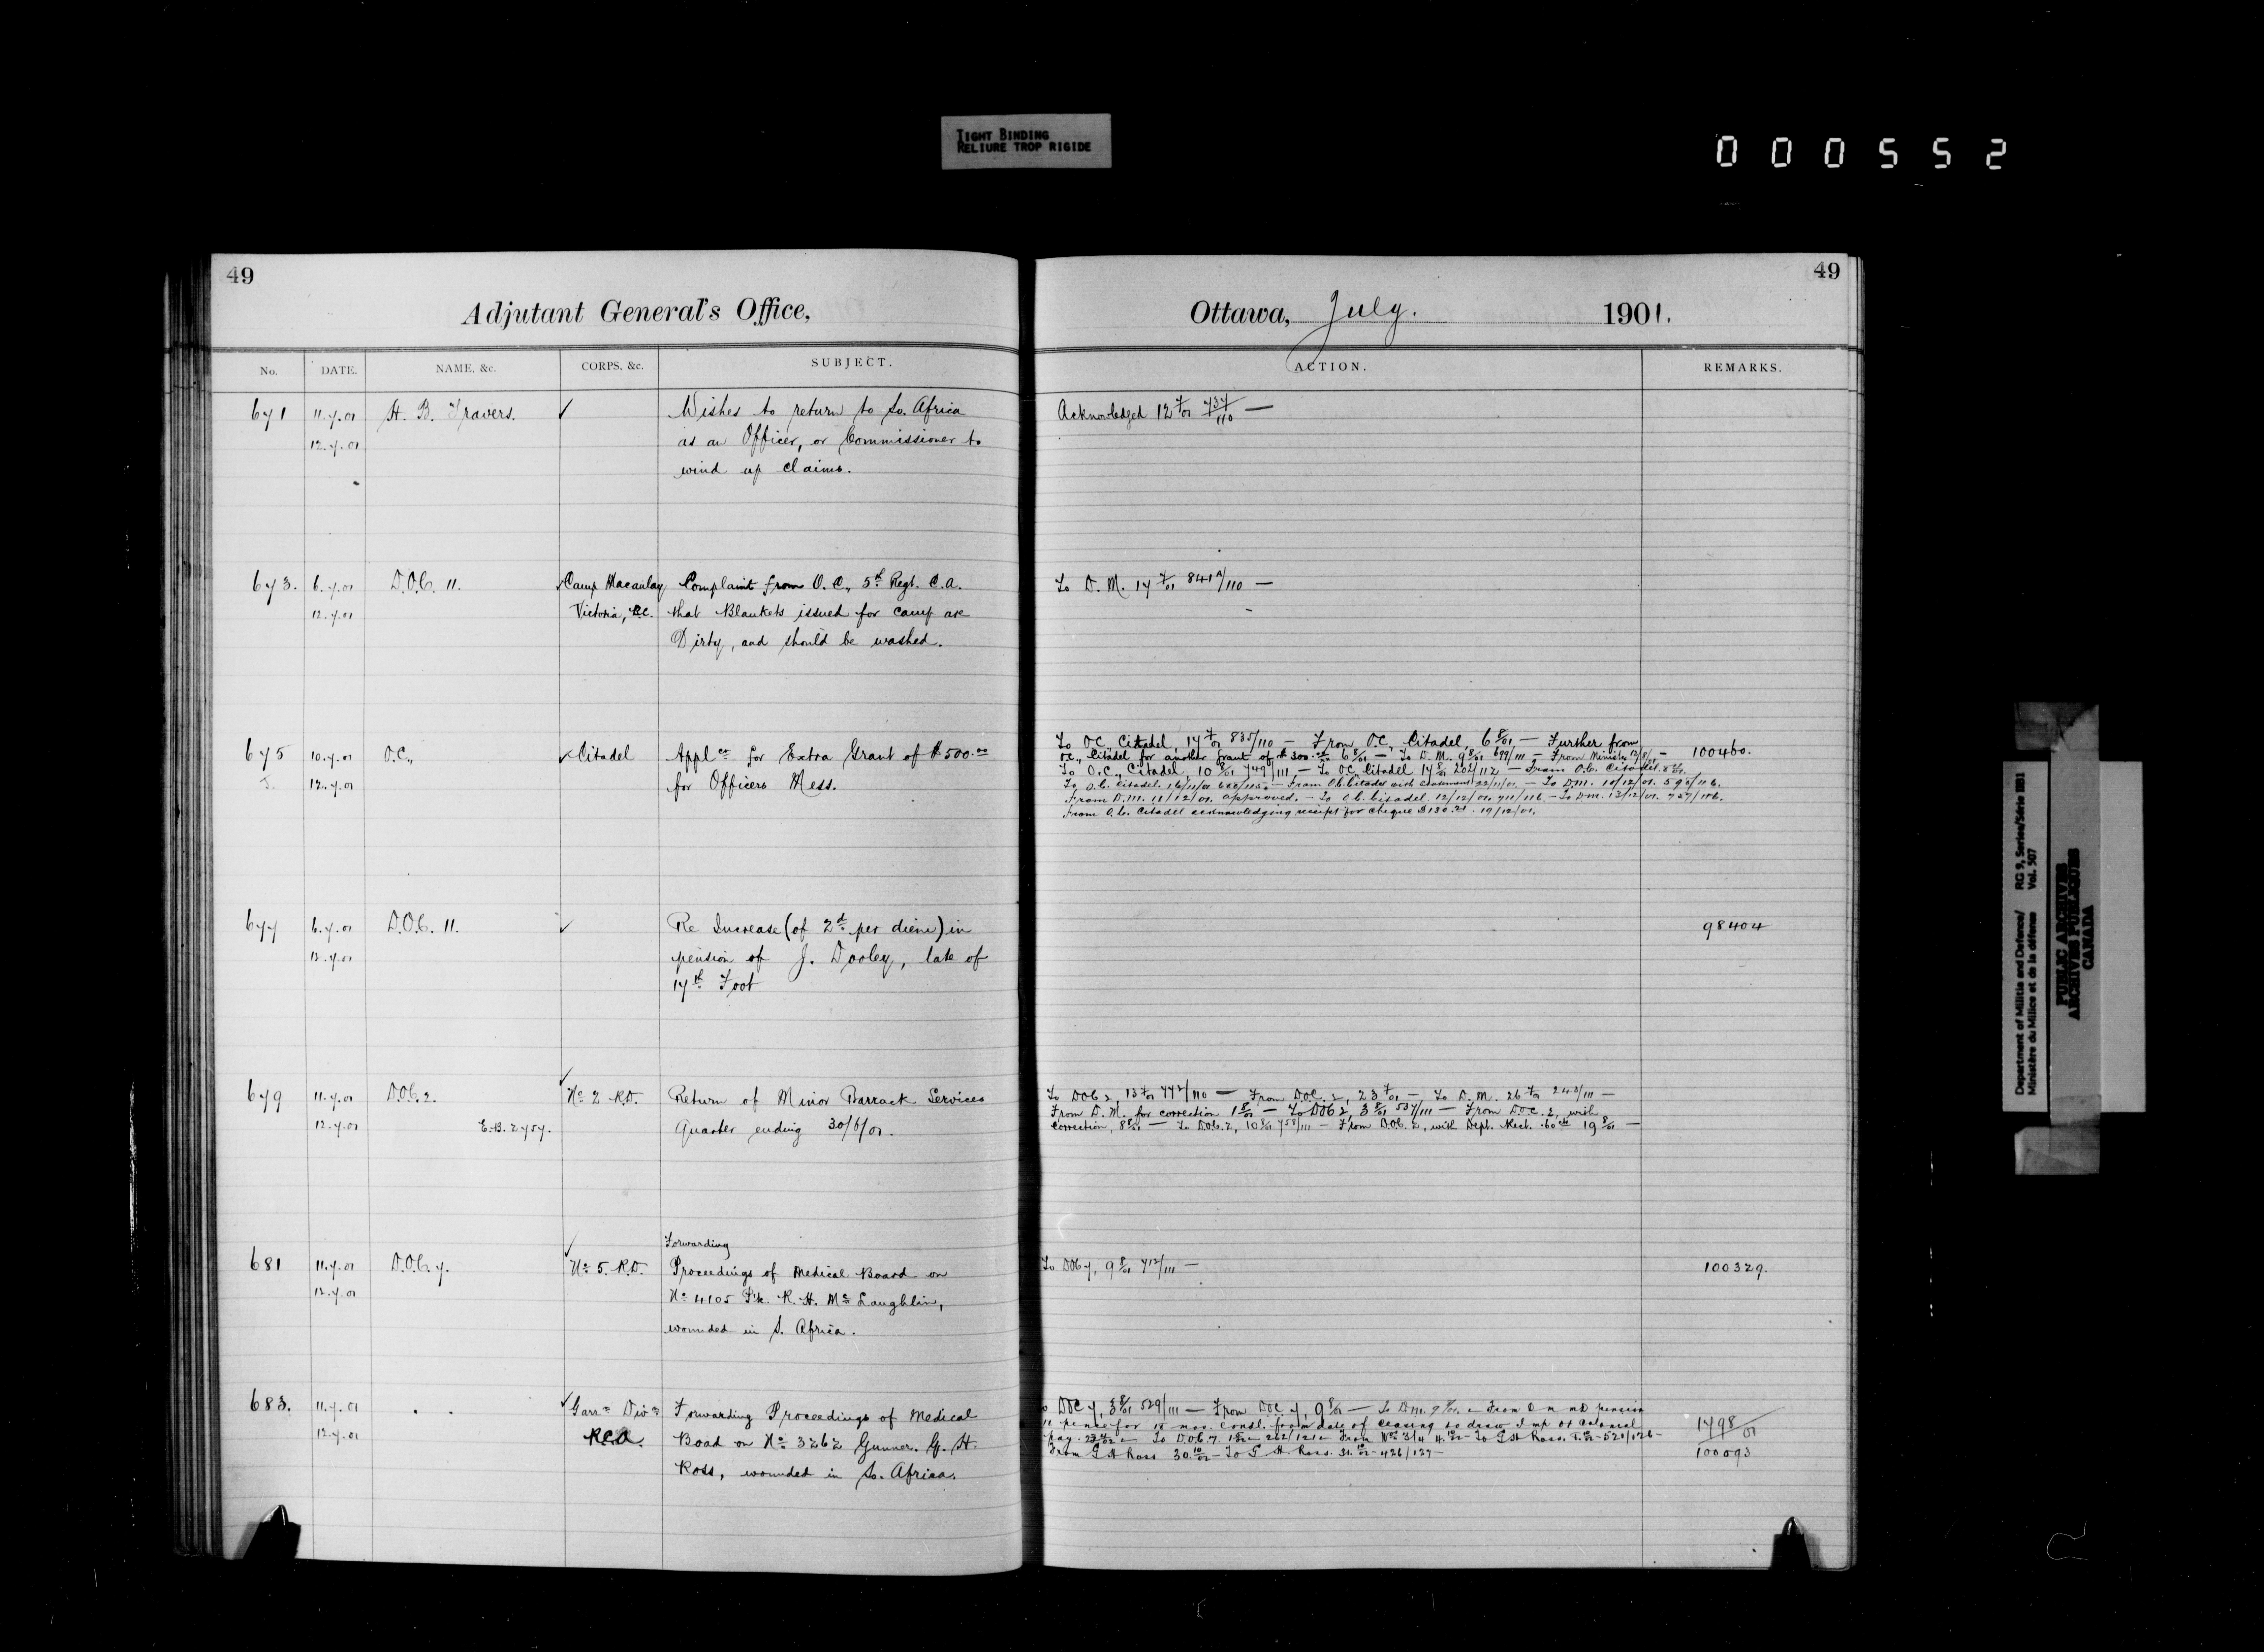 TIGHT BINDING
RELIURE TROP RIGIDE
000552
49
Adjutant General's Office,
No.
DATE.
NAME, &c.
CORPS, &c.
SUBJECT.
671
11.7.01
H. B. Travers.
✓
Wishes to return to So. Africa
12.7.01
as an Officer, or Commissioner to
wind up claims.
673.
6.7.01
D.O.C. 11.
✓ Camp Macaulay
Complaint from O.C., 5th Regt. C.A.
12.7.01
Victoria, B.C.
that Blankets issued for camp are
Dirty, and should be washed.
675
10.7.01
O.C.,
✓ Citadel
Applcn for Extra Grant of $500.00
12.7.01
for Officers Mess.
677
6.7.01
D.O.C. 11.
✓
Re Increase (of 2d per diem) in
12.7.01
pension of J. Dooley, late of
17th Foot
679
11.7.01
D.O.C. 2.
✓
No 2 R.D.
Return of Minor Barrack Services
12.7.01
E.B. 2757.
Quarter ending 30/6/01.
Forwarding
681
11.7.01
D.O.C. 7.
✓
No 5. R.D.
Proceedings of Medical Board on
12.7.01
No 4105 Pte. R. H. McLaughlin,
wounded in S. Africa.
683.
11.7.01
" "
✓ Garrn Divn
Forwarding Proceedings of Medical
12.7.01
R.C.A.
Board on No 3262 Gunner. G. H.
Ross, wounded in So. Africa.
49
Ottawa, July. 1901.
ACTION.
REMARKS.
Acknowledged 12 7/01 737/110 —
To D.M. 17 7/01 841A/110 —
To O.C., Citadel, 17 7/01 835/110 — From O.C., Citadel, 6 8/01 — Further from
O.C., Citadel for another grant of $300.00 6 8/01 — To D.M. 9 8/01 699/111 — From Minister 12/8/01 —
100460.
To O.C., Citadel, 10 8/01 749/111 — To O.C., Citadel 14 8/01 202/112 — From O.C. Citadel
To O.C. Citadel. 16/11/01 — From O.C. Citadel with statement 22/11/01. — To D.M. 10/12/01. 595/116.
From D.M. 11/12/01. approved. — To O.C. Citadel. 12/12/01. 711/116 — To D.M. 13/12/01. 757/116.
From O.C. Citadel acknowledging receipt for cheque $130.21. 19/12/01.
98404
To DOC 2, 13 7/01 772/110 — From DOC. 2, 23 7/01 — To D.M. 26 7/01 243/111 —
From D.M. for correction 1 8/01 — To DOC 2, 3 8/01 537/111 — From D.O.C. 2, with
correction, 8 8/01 — To D.O.C. 2, 10 8/01 758/111 — From D.O.C. 2, with Dept. Rect. .60cts 19 8/01 —
To DOC 7, 9 8/01 712/111 —
100329.
To DOC 7, 3 8/01 529/111 — From DOC 7, 9 8/01 — To D.M. 9 8/01. — From D M no pension
11 pence for 18 mos. condl. from date of ceasing to draw Imp or Colonial
1498/01
pay. — To D.O.C. 7. 262/121 — To G H Ross. 521/126 —
From G H Ross 30 10/02 — To G. H. Ross. 31 10/02 — 426/127 —
100093
Department of Militia and Defence/ RG 9, Series/Série IIB1
Ministère du Milice et de la défense Vol. 507
PUBLIC ARCHIVES
ARCHIVES PUBLIQUES
CANADA